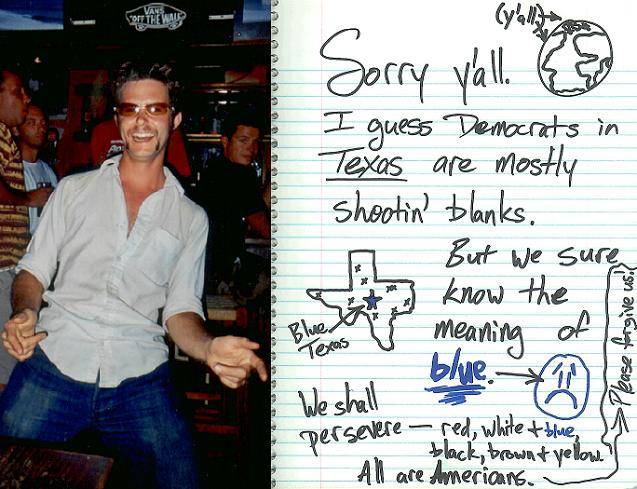 VANS
"OFF THE WALL"
(y'all)
Sorry y'all.
I guess Democrats in
Texas are mostly
shootin' blanks.
But we sure
know the
meaning of
blue.
Blue
Texas
We shall
persevere — red, white + blue,
black, brown + yellow.
All are Americans.
Please forgive us!